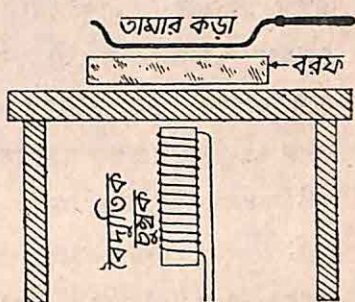 তামার কড়া
বরফ
বৈদ্যুতিক
চুম্বক